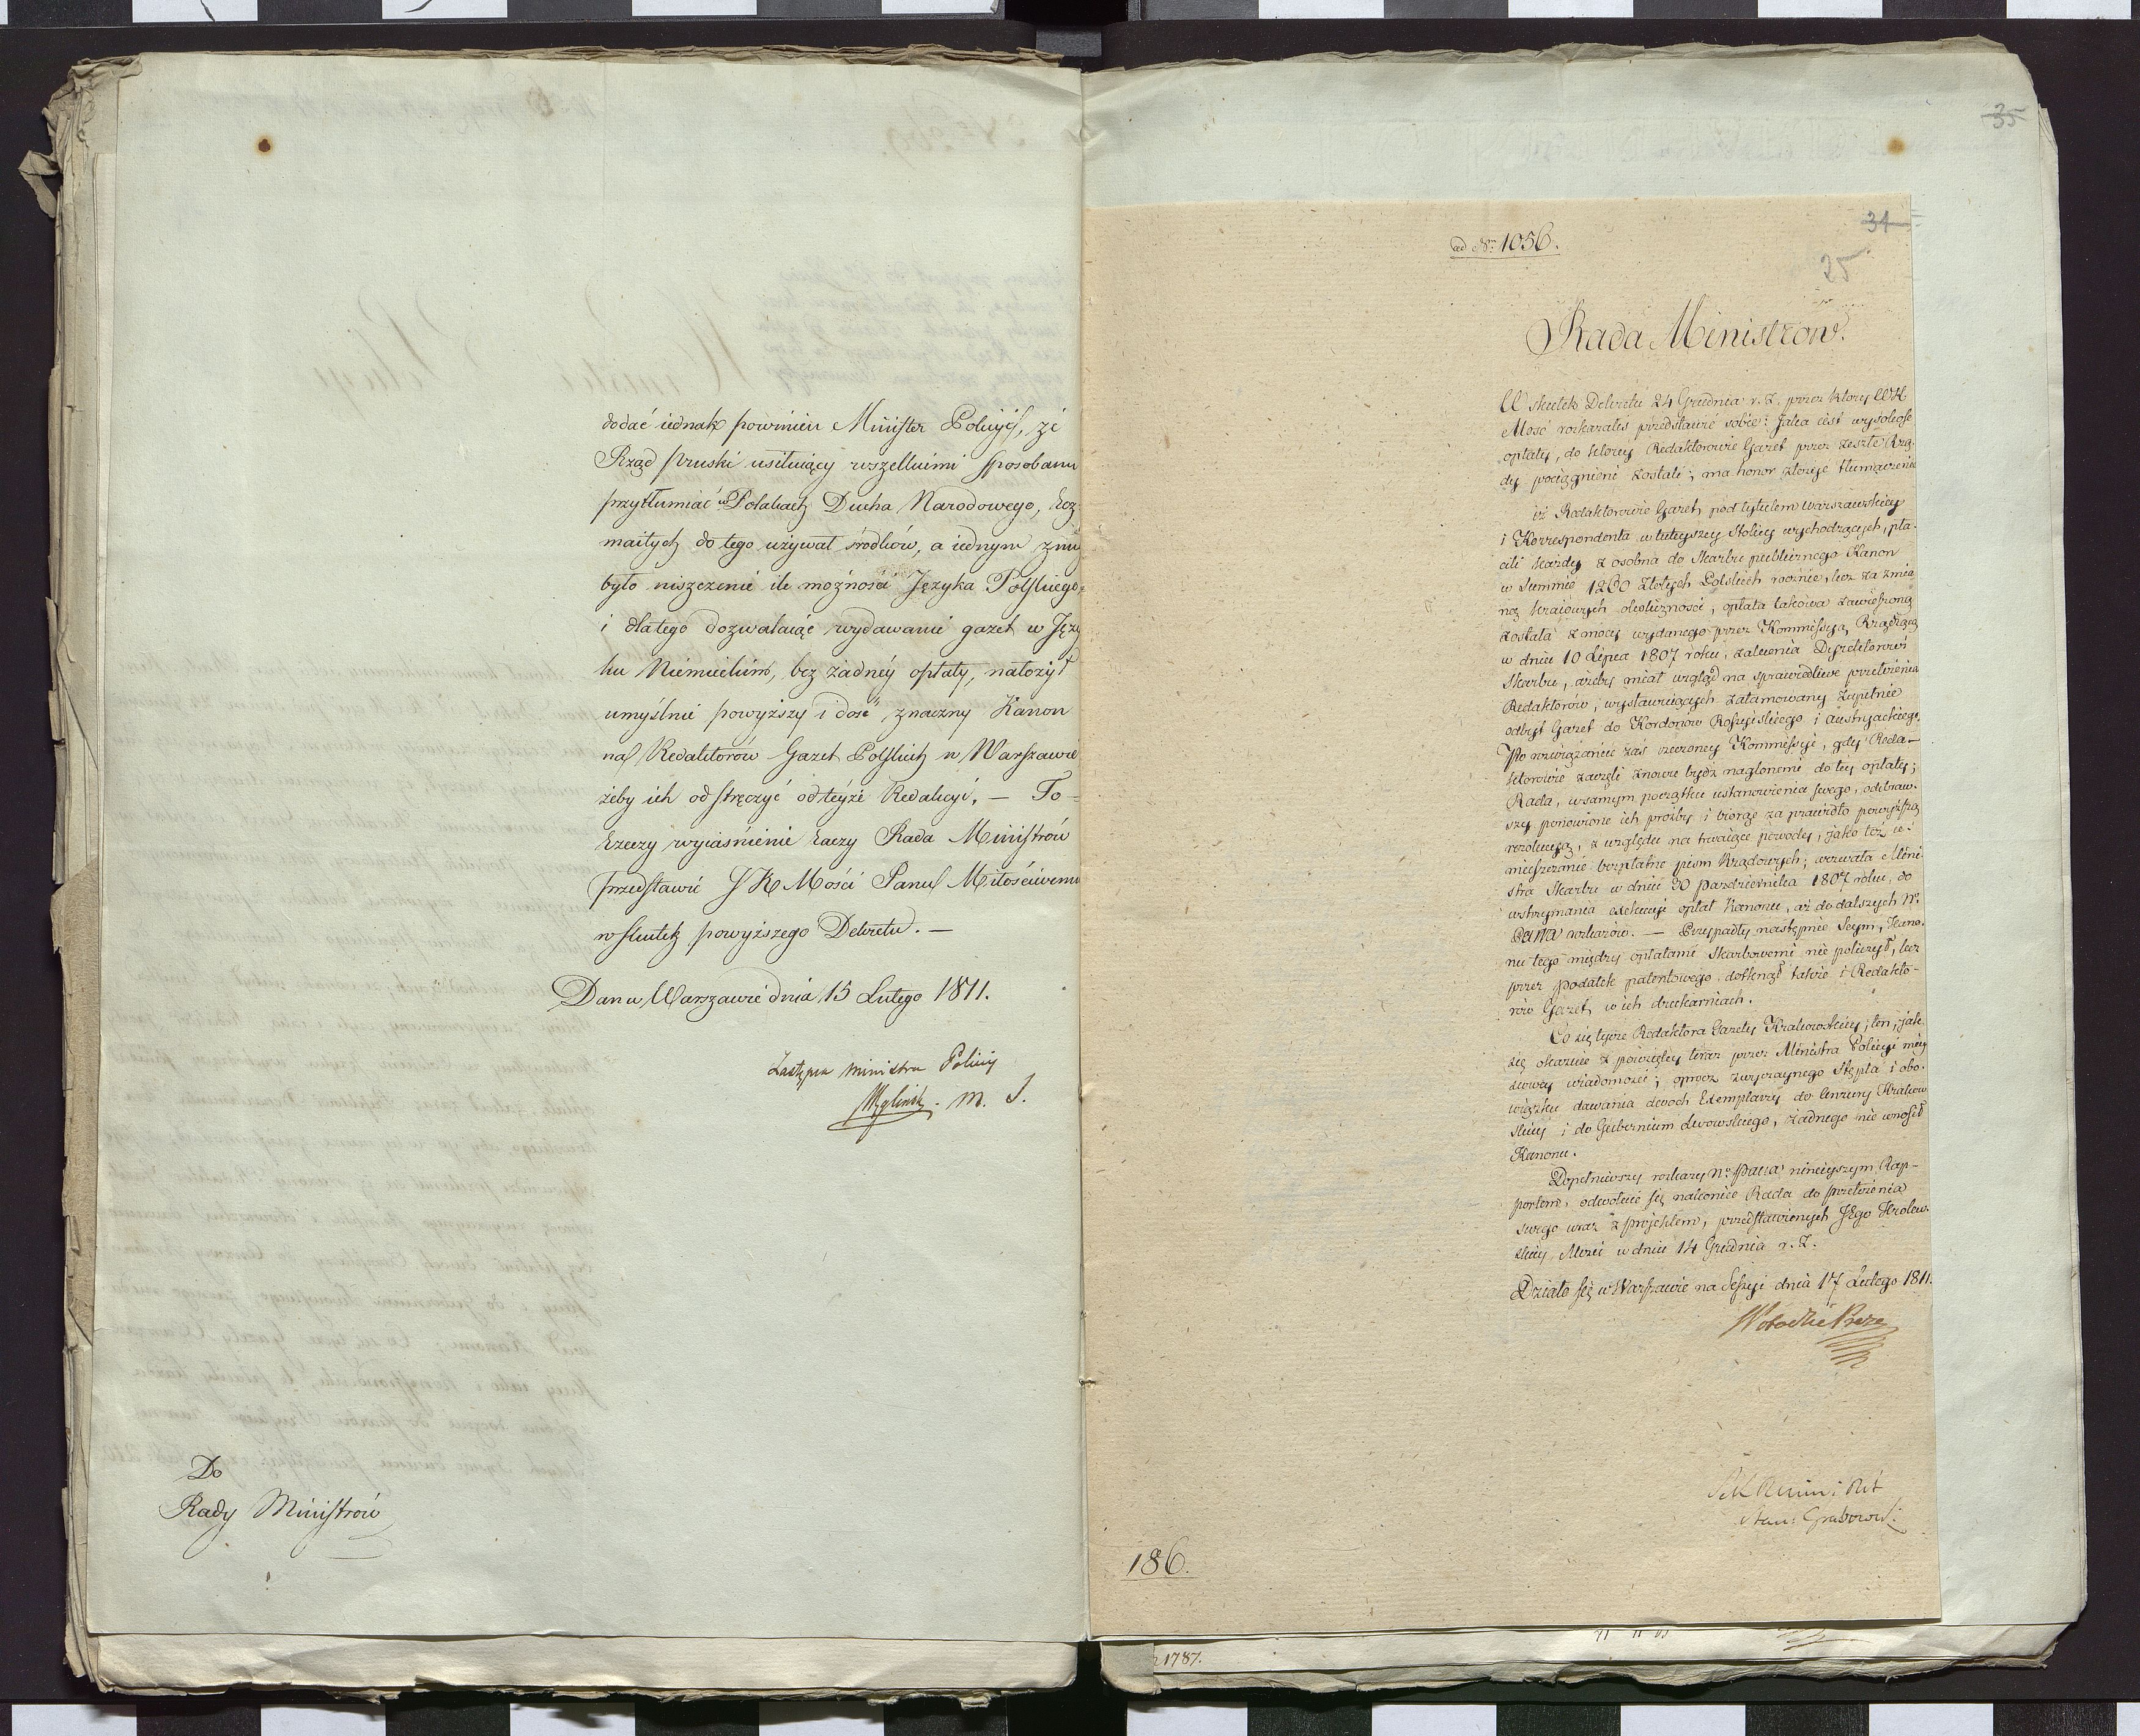 dodać iednak powinien Minister Policyi, że
Rząd pruski usiłuiący wszelkiemi sposobami
przytłumiać w Polakach Ducha Narodowego, roz
maitych do tego używał środków, a iednym z nich
było niszczenie ile możności Języka Polskiego,
i dlatego dozwalaiąc wydawanie gazet w Języ
ku Niemieckim, bez żadnéy opłaty, nałożył
umyślnie powyższy i dość znaczny Kanon
na Redaktorów Gazet Polskich w Warszawie
żeby ich odstręczyć od teyże Redakcyi. — To
rzeczy wyiaśnienie raczy Rada Ministrów
przedstawić J K Mości Panu Miłościwemu
w skutek powyższego Dekretu. —
Dan w Warszawie dnia 15 Lutego 1811.
Zastępca Ministra Policyi
M. S.
Do
Rady Ministrów
35
34
ad Nr 1056.
25
Rada Ministrów.
W skutek Dekretu 24 Grudnia r. z. przez który WK
Mość rozkazałeś przedstawić sobie: Jaka iest wysokość
opłaty, do którey Redaktorowie Gazet przez zeszłe Rzą-
dy pociągnieni zostali; ma honor złożyć tłumaczenie
iż Redaktorowie Gazet pod tytułem Warszawskiey
i Korrespondenta w tuteyszey Stolicy wychodzących, pła-
cili każdy z osobna do Skarbu publicznego Kanon
w Summie 1260 Złotych Polskich rocznie, lecz za zmia
ną kraiowych okoliczności, opłata takowa zawieszoną
została z mocy wydanego przez Kommissyą Rządzącą
w dniu 10 Lipca 1807 roku, zalecenia Dyrektorowi
Skarbu, ażeby miał wzgląd na sprawiedliwe przełożenia
Redaktorów, wystawuiących zatamowany zupełnie
odbyt Gazet do Kordonów Rossyiskiego i Austryackiego.
Po rozwiązaniu zaś rzeczoney Kommissyi, gdy Reda-
ktorowie zaczęli znowu bydź naglonemi do tey opłaty;
Rada, w samym początku ustanowienia swego, odebraw-
szy ponowione ich prośby i biorąc za prawidło powyższą
rezolucyą, z względu na trwaiące powody, jako też u-
mieszczanie bezpłatne pism Rządowych; wezwała Mini-
stra Skarbu w dniu 30 Października 1807 roku, do
wstrzymania exekucyi opłat Kanonu, aż do dalszych Nº
Pana rozkazów. — Przypadły następnie Seym, Kano-
nu tego między opłatami Skarbowemi nie policzył, lecz
przez podatek patentowego dotknął także i Redakto-
rów Gazet w ich drukarniach.
Co się tycze Redaktora Gazety Krakowskiey; ten, jak
się okazuie z powziętey teraz przez Ministra Policyi miey
scowey wiadomości; oprócz zwyczaynego Stępla i obo-
wiązku dawania dwóch Exemplarzy do Cenzury Krakow
skiey i do Gubernium Lwowskiego, żadnego nie wnosił
Kanonu.
Dopełniwszy rozkazy Nº Pana ninieyszym Rap-
portem, odwołuie się nakoniec Rada do przełożenia
swego wraz z projektem, przedstawionych JEgo Krolew-
skiey Mości w dniu 14 Grudnia r. z.
Działo się w Warszawie na Sessyi dnia 17 Lutego 1811.
Stan: Grabowsk:
186.
1787.